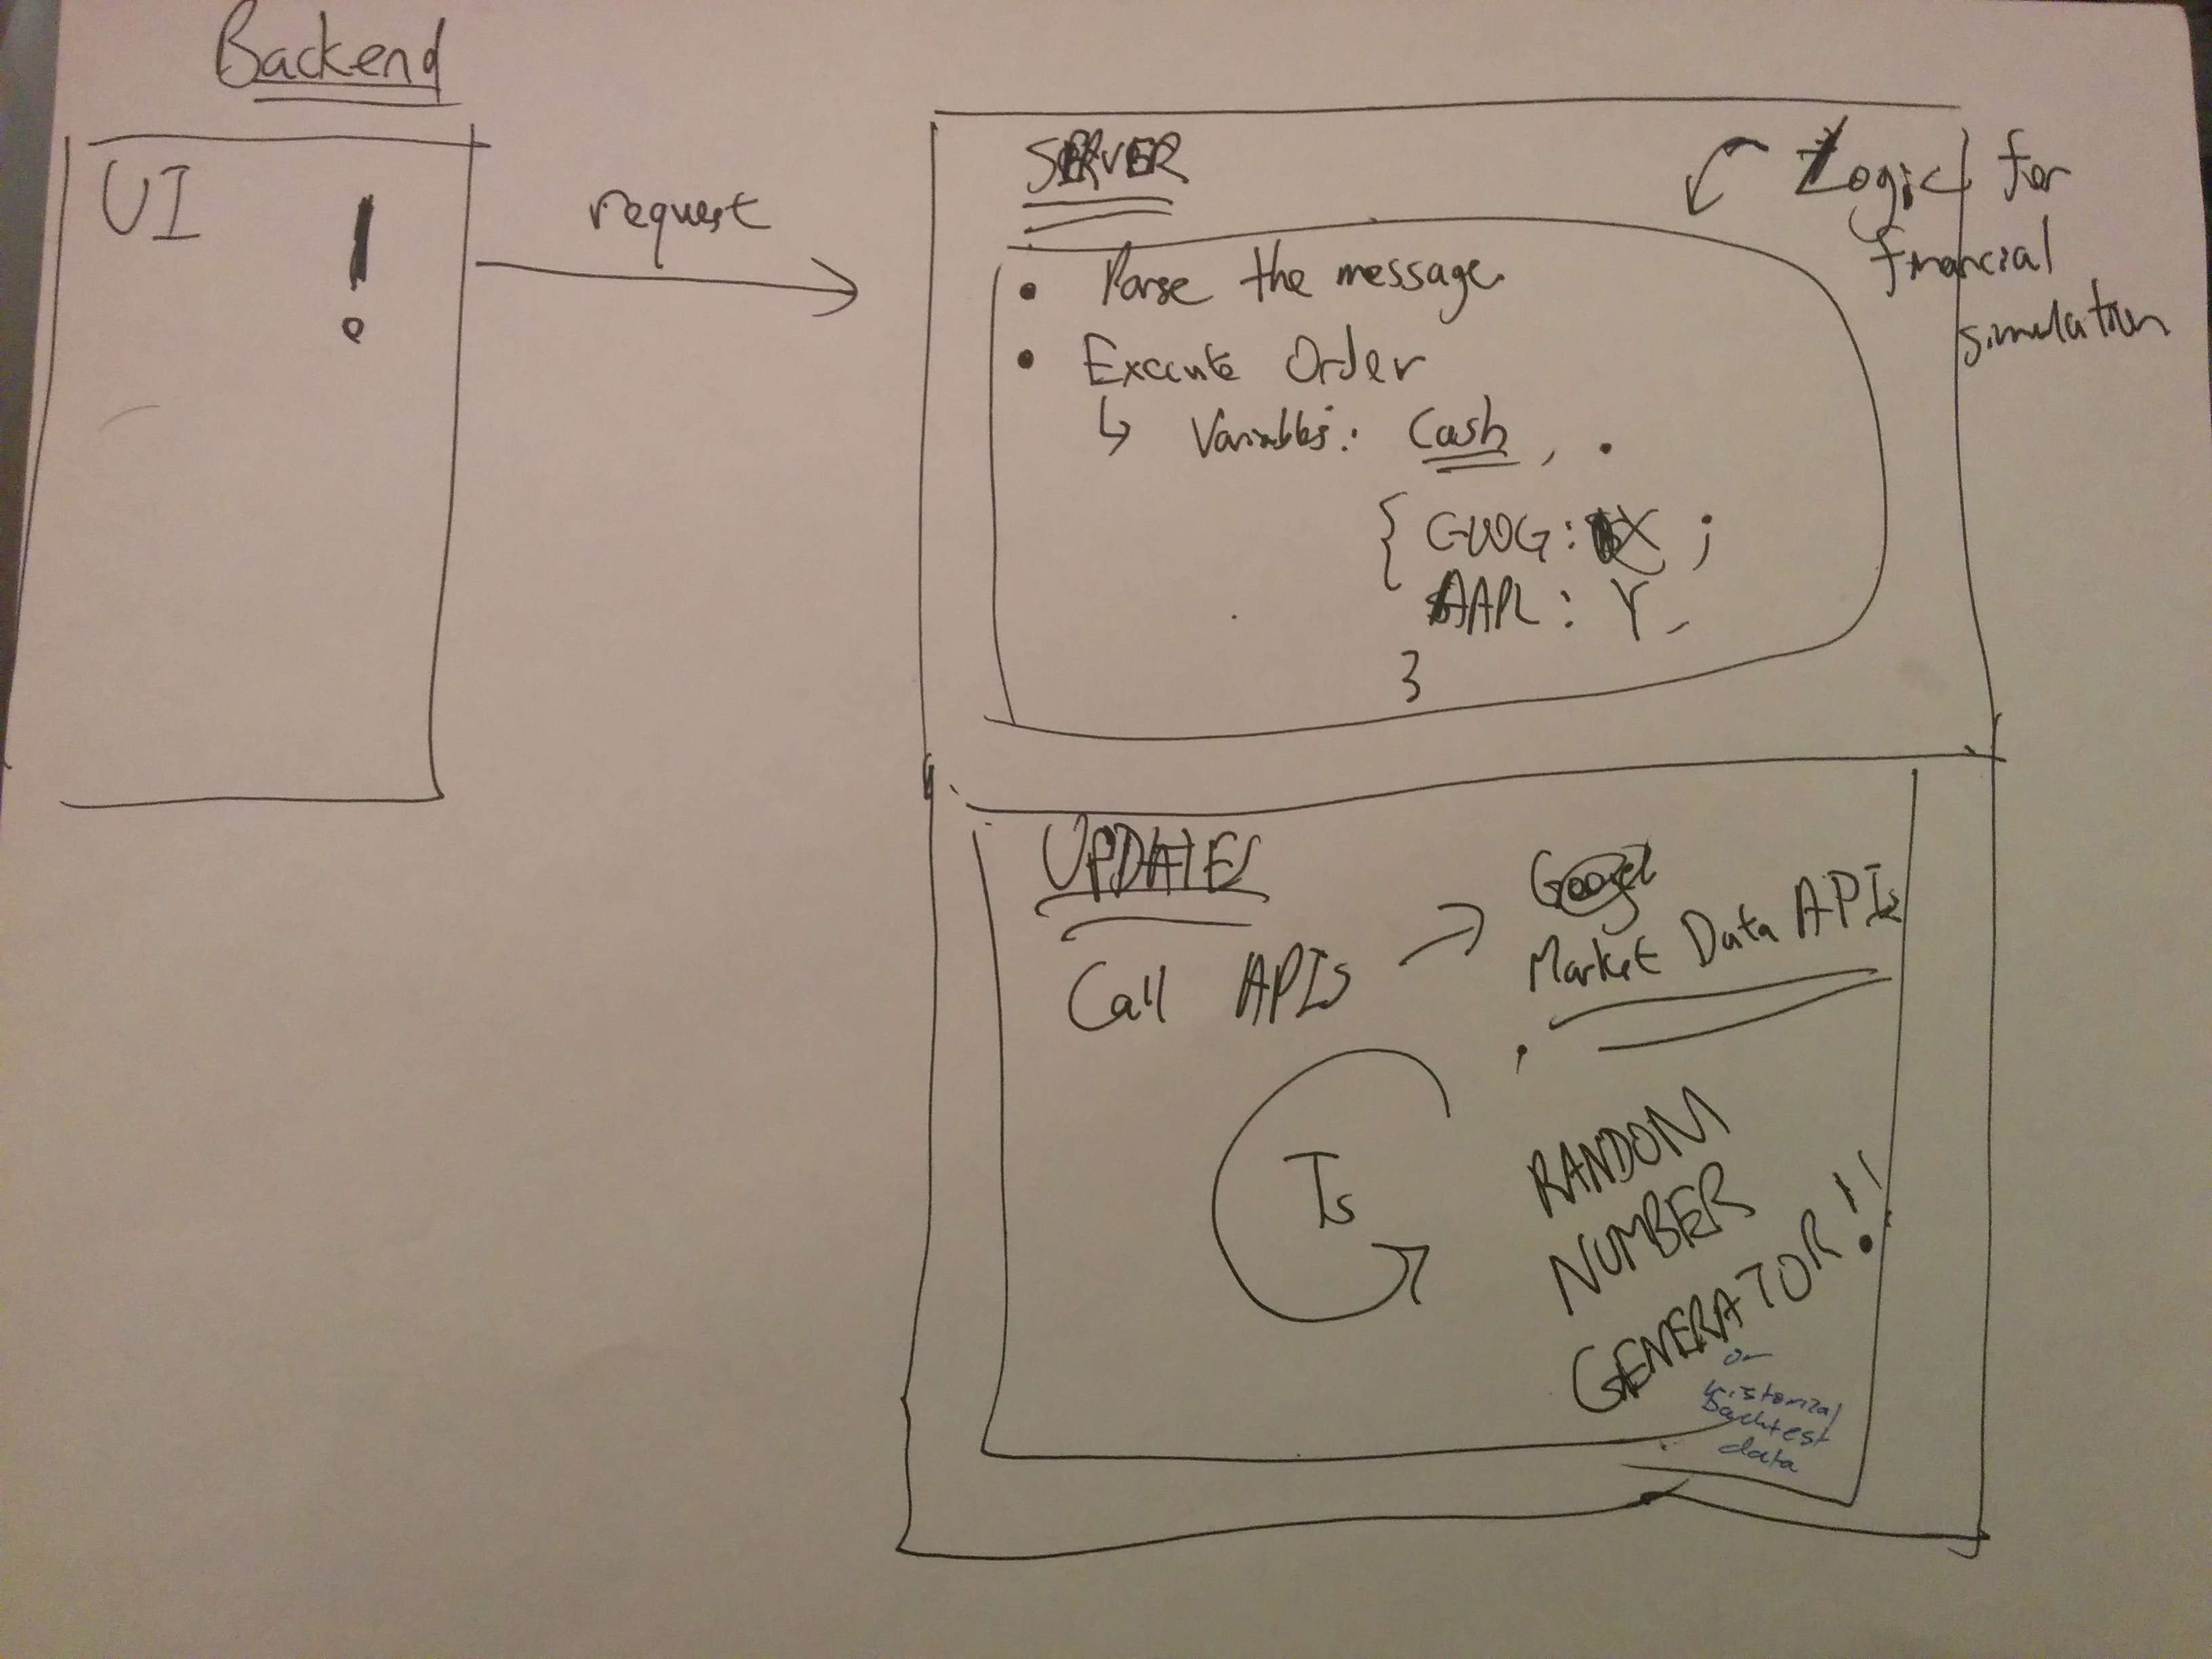 Backend
UI !
request
SERVER
Logic for
financial
simulation
• Parse the message
• Execute Order
↳ Variables: Cash, .
{ GOOG: X ;
AAPL: Y
}
UPDATES
Call APIs →
Market Data APIs
RANDOM
NUMBER
GENERATOR!!
or
historical
backtest
data